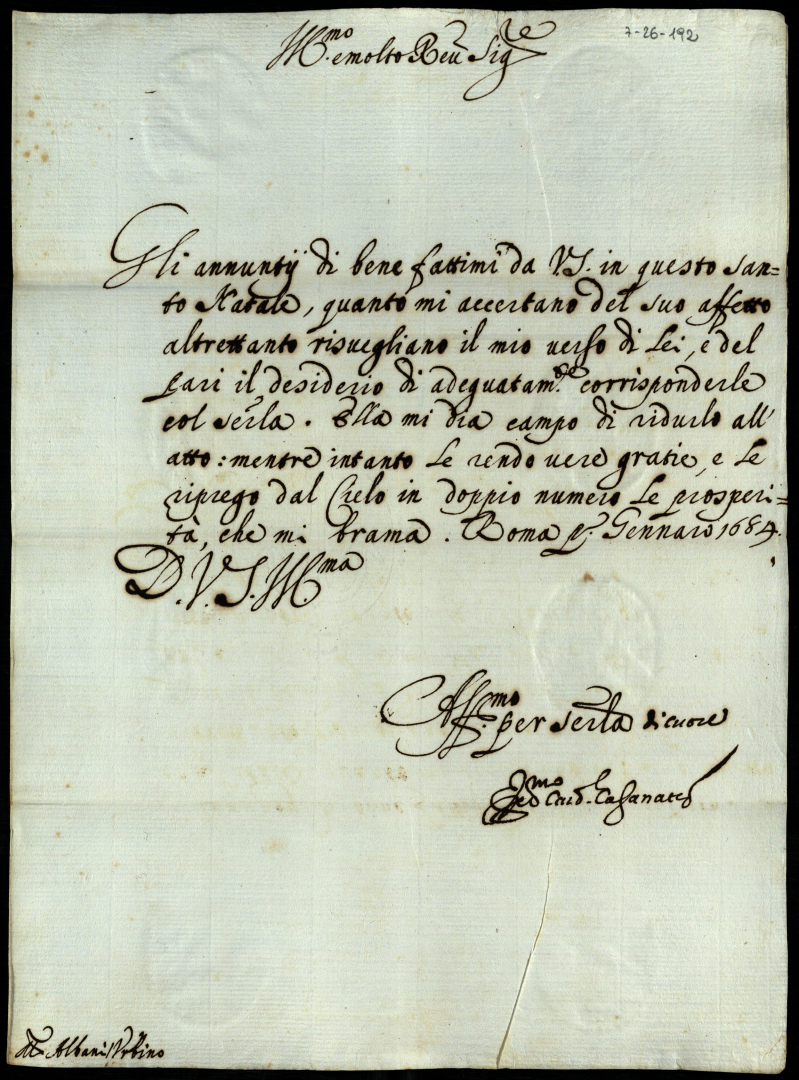 7-26-192
Ill.mo e molto Reu Sig.re
Gli annuntij di bene fattimi da VS. in questo san=
to Natale, quanto mi accertano del suo affetto
altrettanto risuegliano il mio uerso di Lei, e del
pari il desiderio di adeguatam.te corrisponderle
col serla. Ella mi dia campo di ridurlo all'
atto: mentre intanto Le rendo uere gratie, e Le
riprego dal Cielo in doppio numero Le prosperi=
tà, che mi brama. Roma p.º Gennaro 1684.
D. V. S. Ill.ma
Aff.mo per serla di cuore
Card. Casanate
Albani Urbino